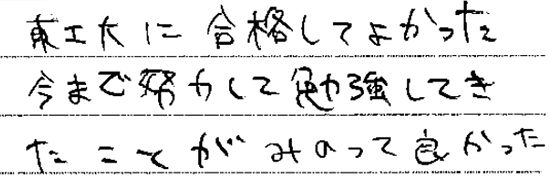 東工大に合格してよかった
今まで努力して勉強してき
たことがみのって良かった